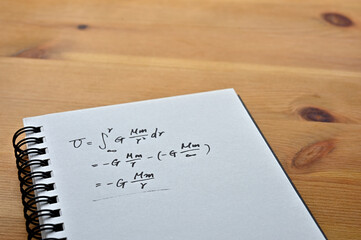 U = ∫_∞^r G Mm/r² dr
= -G Mm/r - (-G Mm/∞)
= -G Mm/r